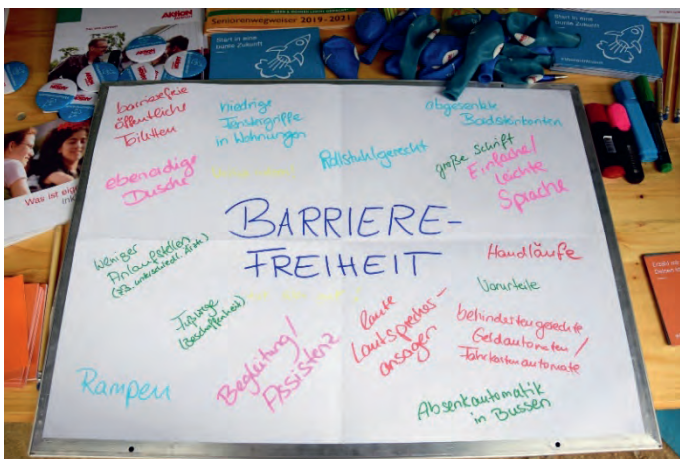 Seniorenwegweiser 2019-2021
AKTION
Start in eine
bunte Zukunft
Start in eine
bunte Zukunft
barrierefreie
öffentliche
Toiletten
niedrige
Fenstergriffe
in Wohnungen
abgesenkte
Bordsteinkanten
Rollstuhlgerecht
große Schrift
Einfache/
leichte
Sprache
ebenerdige
Dusche
Was ist
BARRIERE-
FREIHEIT
weniger
Anlaufstellen
Handläufe
Vorurteile
Fußwege
(Beschaffenheit)
laute
Lautsprecher-
ansagen
behindertengerechte
Geldautomaten/
Fahrkartenautomate
Begleitung/
Assistenz
Rampen
Absenkautomatik
in Bussen